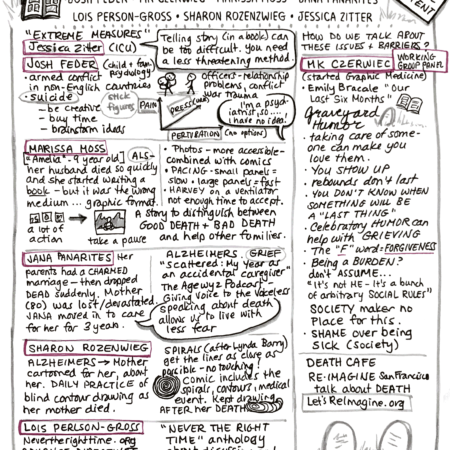 JOSH FEDER · MK CZERWIEC · MARISSA MOSS · DANA PANARITES
LOIS PERSON-GROSS • SHARON ROZENZWIEG • JESSICA ZITTER
"EXTREME MEASURES"
Jessica Zitter (ICU)
Telling story (in a book) can
be too difficult. You need
a less threatening method.
JOSH FEDER (child + fam.
psychology
• armed conflict
in non-English countries
• suicide
- be creative
- buy time
- brainstorm ideas
stick
figures
PAIN
PRESS(URE)
PERTURBATION (an options)
officers - relationship
problems, conflict
war trauma
I'm a psych-
iatrist, so....
I have no idea!
MARISSA MOSS
"Amelia" - 9 year old
ALS-
her husband died so quickly
and she started writing a
book - but it was the wrong
medium... graphic format.
a lot of
action
take a pause
• Photos - more accessible-
combined with comics
• PACING - small panels =
slow • large panels = fast
• HARVEY on a ventilator
not enough time to accept.
A story to distinguish between
GOOD DEATH + BAD DEATH
and help other families.
NANA PANARITES Her
parents had a CHARMED
marriage - then dropped
DEAD suddenly. Mother
(80) was lost/devastated.
NANA moved in to care
for her for 3 years.
ALZHEIMERS GRIEF
"Scattered: My year as
an accidental caregiver"
The Agewyz Podcast -
Giving voice to the Voiceless
speaking about death
allows us to live with
less fear
SHARON ROZENWIEG
ALZHEIMERS → Mother
cartooned for her, about
her. DAILY PRACTICE of
blind contour drawing as
her mother died.
SPIRALS (after Lynda Barry)
get the lines as close as
possible - no touching
Comic includes the
spirals, contours, medical
event. Kept drawing
AFTER her DEATH
LOIS PERLSON-GROSS
Nevertherighttime.org
"NEVER THE RIGHT
TIME" anthology
HOW DO WE TALK ABOUT
THESE ISSUES + BARRIERS?
MK CZERWIEC
WORKING
GROUP PANEL
(started Graphic Medicine)
• Emily Bracale "Our
Last Six Months"
Graveyard
Humor
• taking care of some-
one can make you
love them.
• YOU SHOW UP
• rebounds don't last
• YOU DON'T KNOW WHEN
SOMETHING WILL BE
A "LAST THING"
• Celebratory HUMOR can
help with GRIEVING
• The "F" word: FORGIVENESS
• Being a BURDEN?
don't ASSUME...
"It's not HE - It's a bunch
of arbitrary SOCIAL RULES"
SOCIETY makes no
Place for this.
• SHAME over being
SICK (Society)
DEATH CAFE
RE-IMAGINE San Francisco
talk about DEATH
Let's ReImagine.org